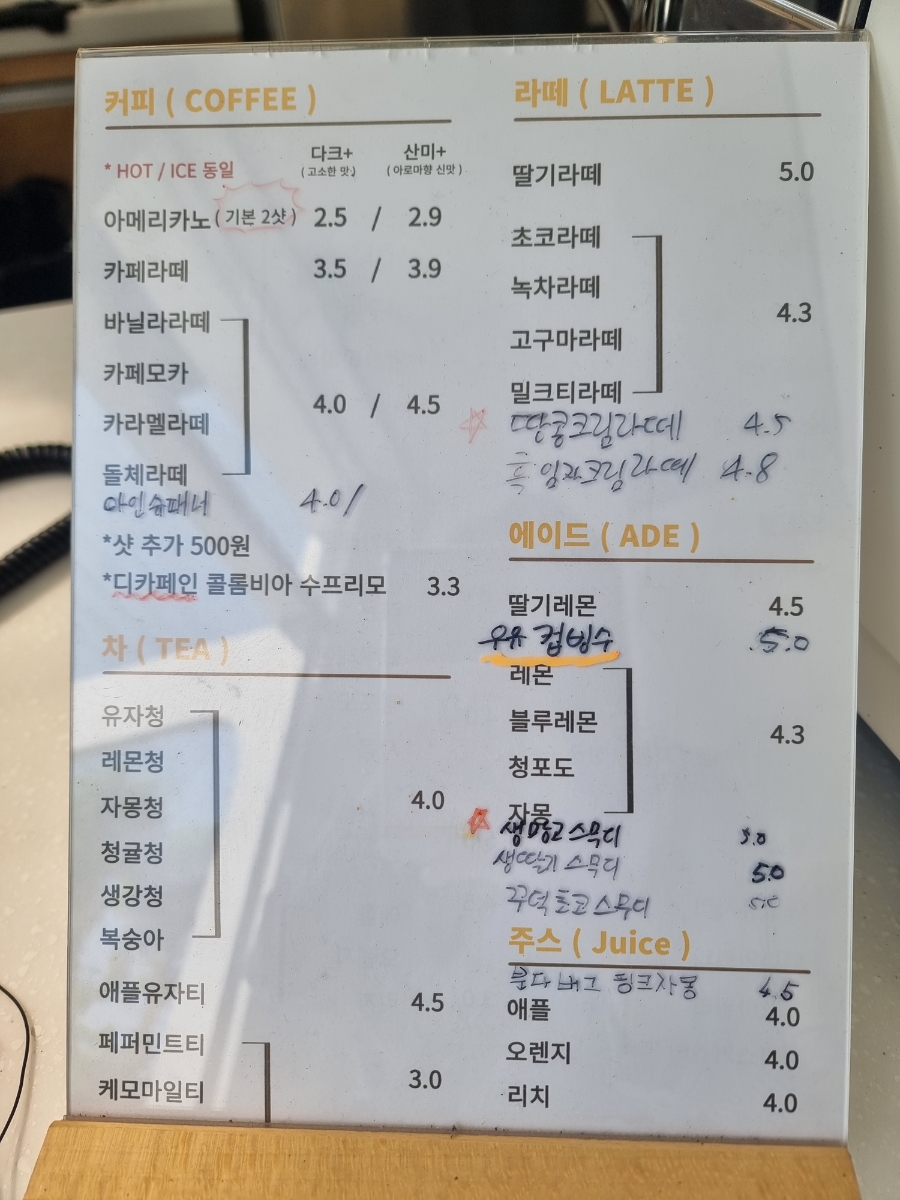 커피 ( COFFEE )
* HOT / ICE 동일 다크+ 산미+
( 고소한 맛 ) ( 아로마향 신맛 )
아메리카노 ( 기본 2샷 ) 2.5 / 2.9
카페라떼 3.5 / 3.9
바닐라라떼
카페모카
4.0 / 4.5
카라멜라떼
돌체라떼
아인슈패너 4.0/
*샷 추가 500원
*디카페인 콜롬비아 수프리모 3.3
차 ( TEA )
유자청
레몬청
자몽청 4.0
청귤청
생강청
복숭아
애플유자티 4.5
페퍼민트티
케모마일티 3.0
라떼 ( LATTE )
딸기라떼 5.0
초코라떼
녹차라떼
4.3
고구마라떼
밀크티라떼
땅콩크림라떼 4.5
흑임자크림라떼 4.8
에이드 ( ADE )
딸기레몬 4.5
우유 컵빙수 5.0
레몬
블루레몬
4.3
청포도
자몽
생망고스무디 5.0
생딸기 스무디 5.0
꾸덕초코스무디
주스 ( Juice )
붇다배그 핑크자몽 4.5
애플 4.0
오렌지 4.0
리치 4.0